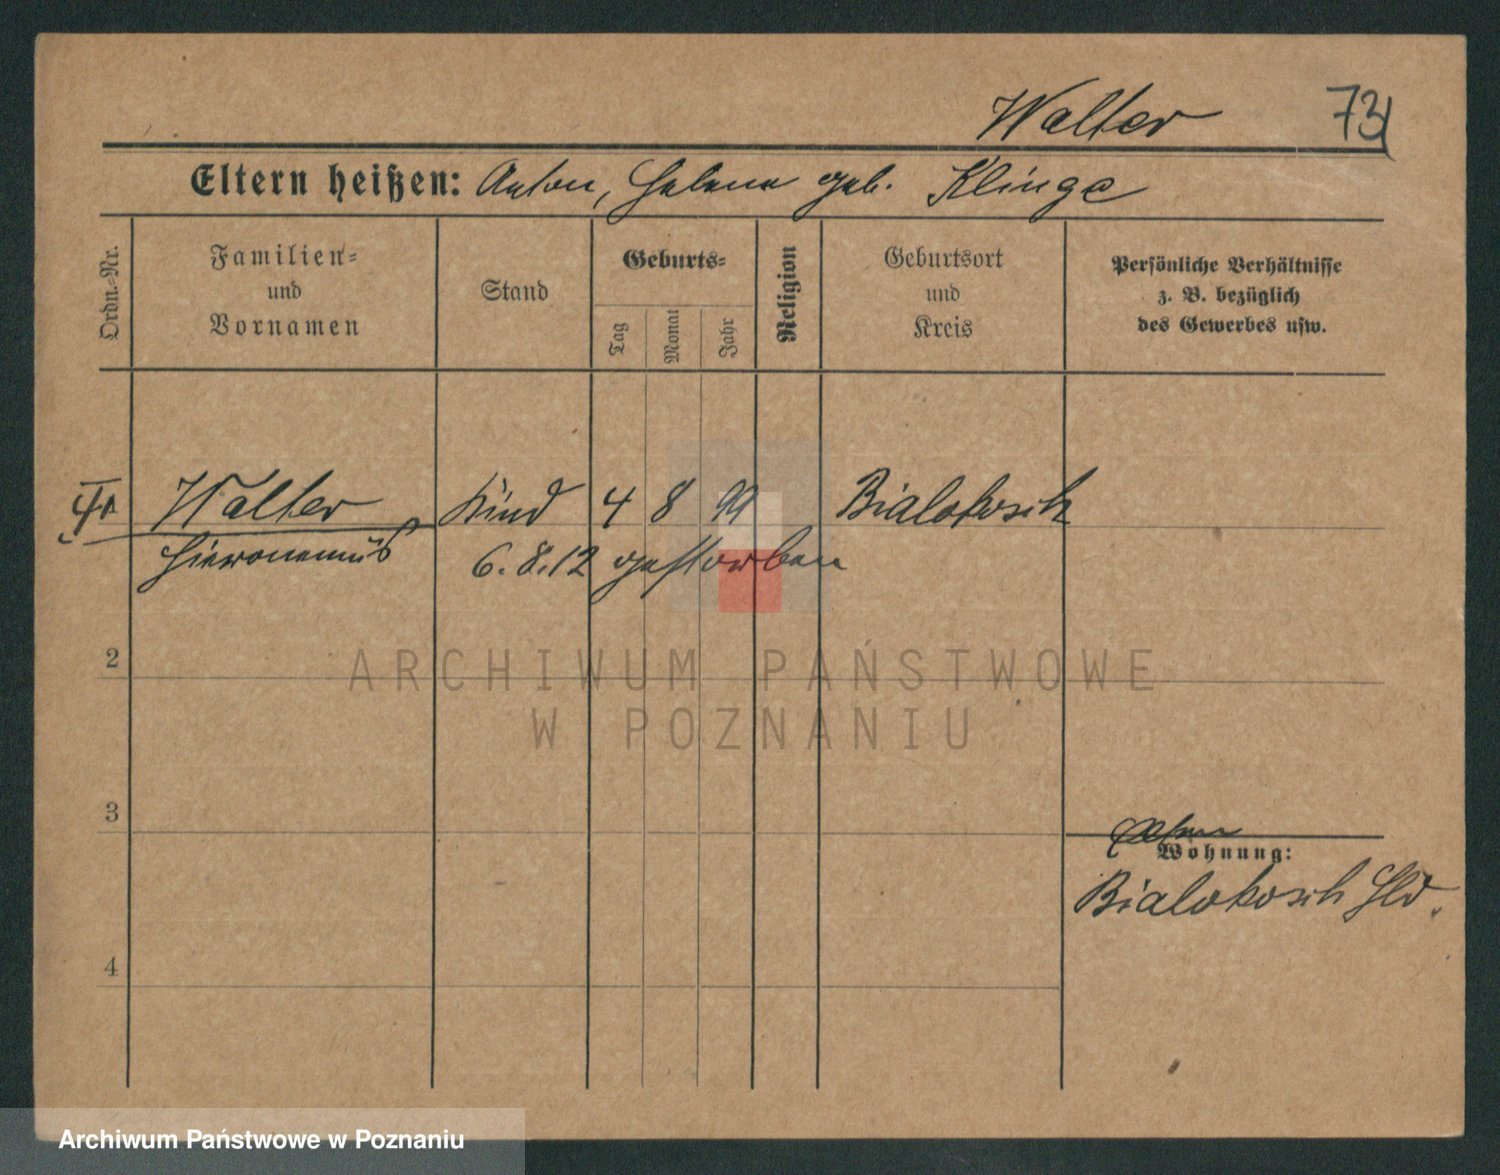 Walter 73
Eltern heißen: Anton, Helene geb. Klinge
Ordn.-Nr.
Familien-
und
Vornamen
Stand
Geburts-
Tag
Monat
Jahr
Religion
Geburtsort
und
Kreis
Persönliche Verhältnisse
z. B. bezüglich
des Gewerbes usw.
Walter Kind 4 8 99 Bialokosch
Hieronemus 6.8.12 gestorben
2
ARCHIWUM PAŃSTWOWE
W POZNANIU
3
Wohnung:
Bialokosch Hld.
4
Archiwum Państwowe w Poznaniu